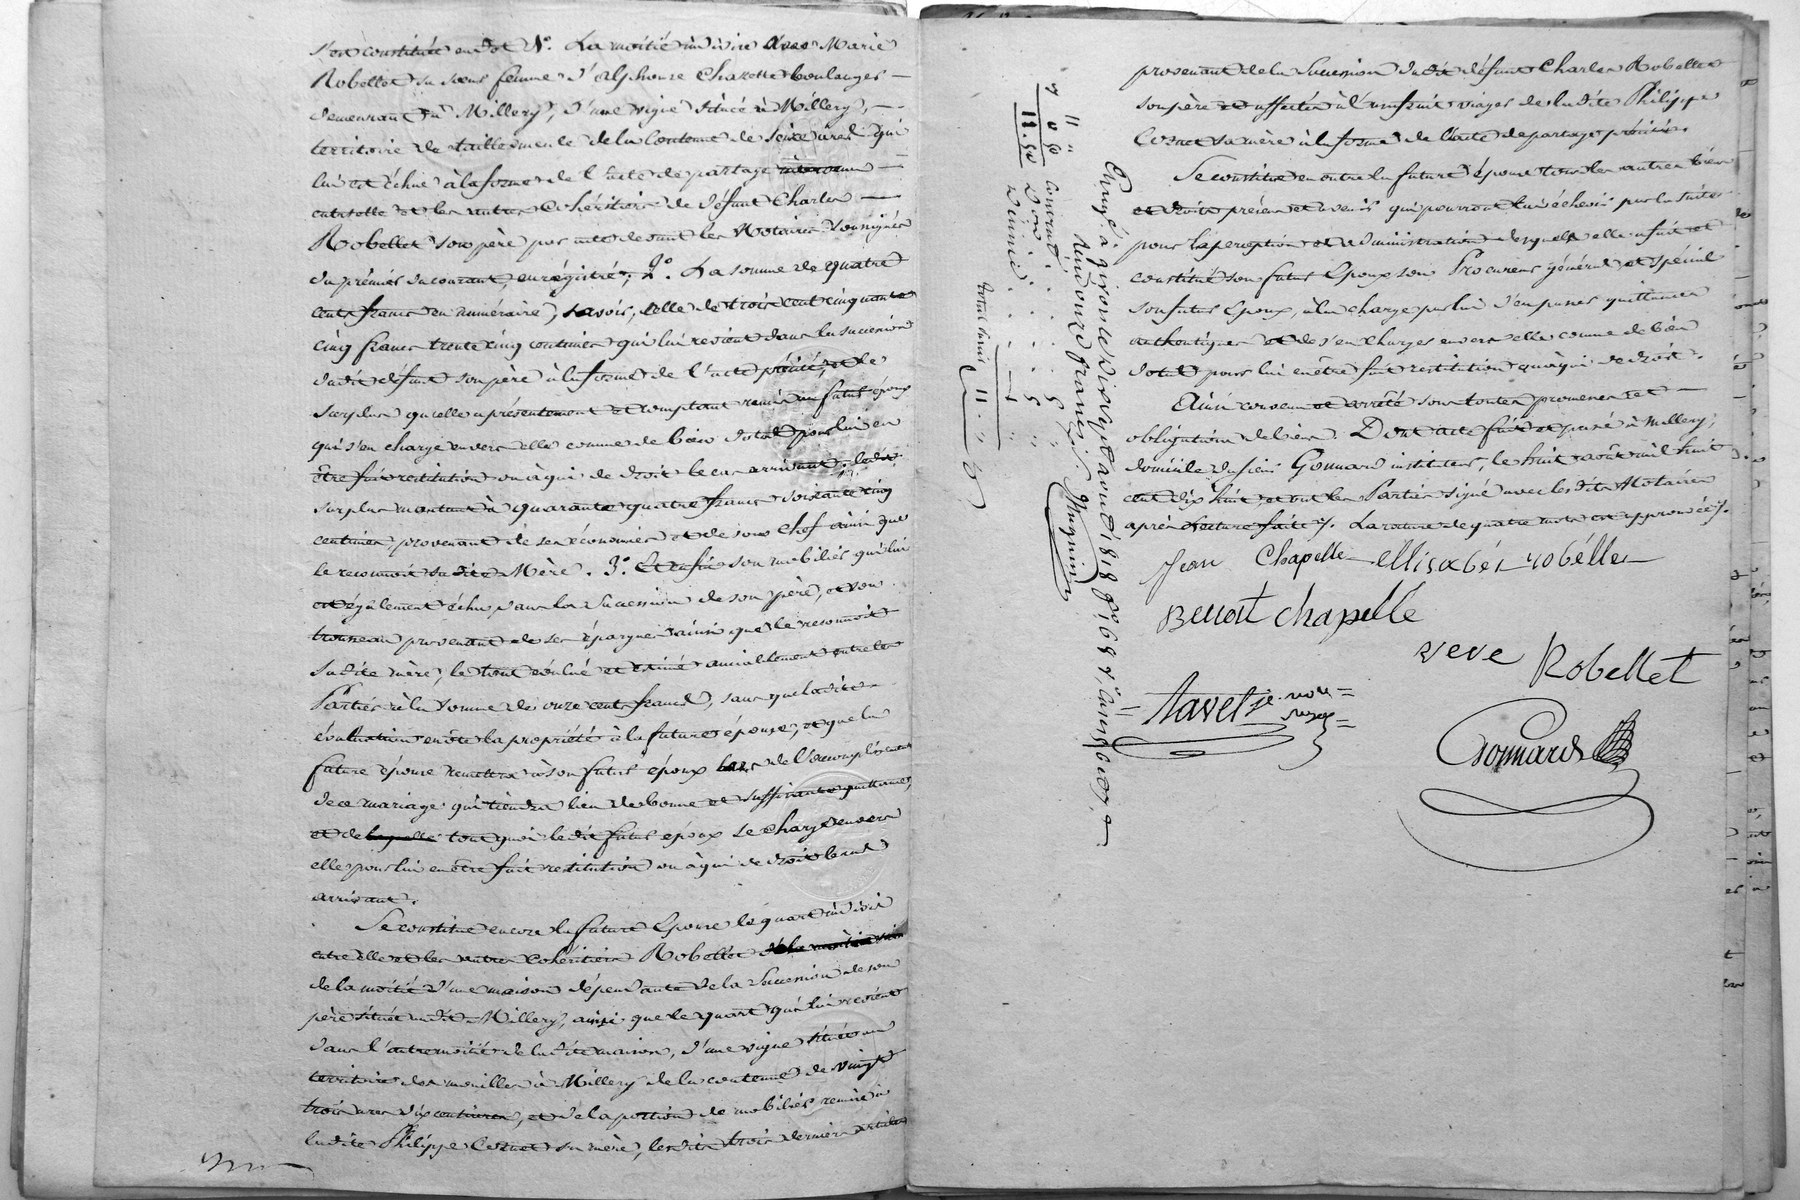 s'est constituée en dot 1°. La moitié indivise avec Marie
Robellet sa sœur femme d'alphonse Charette boulanger
demeurant à Millery, d'une vigne située à Millery,
territoire de taillesmente de la Contenue de seize ares qui
lui est échue à la forme de l'acte de partage intervenu
entr'elle et les autres Cohéritiers de défunt Charles
Robellet son père par acte devant les Notaires soussignés
du premier du courant, enregistré; 2°. La somme de quatre
cents francs en numéraire, savoir, celle de trois cent cinquante
cinq francs trente cinq centimes qui lui revient dans la succession
dudit défunt son père à la forme de l'acte précité, et le
surplus qu'elle a présentement et comptant remis au futur époux
qui s'en charge envers elle comme de bien dotal pour lui en
être fait restitution ou à qui de droit le cas arrivant, ledit
surplus montant à quarante quatre francs soixante cinq
centimes, provenant de ses économies et de sons Chef ainsi que
le reconnoit sa dite Mère. 3°. Et enfin son mobilier qui lui
est également échu dans la Succession de son père, et son
trousseau provenant de ses épargnes ainsi que le reconnoit
sadite mère, le tout évalué et estimé amiablement entre les
Parties à la somme de onze cents francs, sans que ladite
évaluation en ôte la propriété à la future épouse, et que la
future épouse remettra à son futur époux lors de l'accomplissement
de ce mariage qui tiendra lieu de bonne et suffisante quittance,
et de laquelle tout quoi ledit futur époux se charge envers
elle pour lui en être fait restitution ou à qui de droit le cas
arrivant.
Se constitue encore la future Epouse le quart indivis
entre elle et les autres cohéritiers Robellet
de la moitié d'une maison dépendante de la Succession de son
père située audit Millery, ainsi que le quart qui lui revient
dans l'autre moitié de ladite maison, d'une vigne située au
territoire des mouilles à Millery de la contenue de vingt
trois ares dix centiares, et de la portion de mobilier remise à
ladite Philippe Cosnet sa mère, lesdits trois derniers articles
provenant de la Succession dudit défunt Charles Robellet
son père et affectés à l'usufruit viager de ladite Philippe
Cosnet sa mère à la forme de l'acte de partage précité.
Se constitue en outre la future épouse tous les autres biens
et droits présens et avenir qui pourront lui échoir par la suite
pour la perception et administration desquels elle a fait et
constitué son futur Epoux son Procureur général et spécial
son futur Epoux, à la charge par lui d'en passer quittances
authentiques et de s'en charger envers elle comme de bien
dotal pour lui en être fait restitution ou à qui de droit.
Ainsi convenu et arrêté sous toutes promesses et
obligations de biens. Dont acte fait et passé à Millery,
domicile du sieur Gonnard instituteur, le huit août mil huit
cent dix huit, et ont les Parties signé avec lesdits Notaires
après lecture faite ./. La rature de quatre mots est approuvée ./.
Jean Chapelle ellisabét robéllet
Benoit Chapelle
veve Robellet
Tavel
Gonnard
à givors le dix sept aout 1818 f° 69
Reçu onze francs
Contrat
Don
Dixième
total